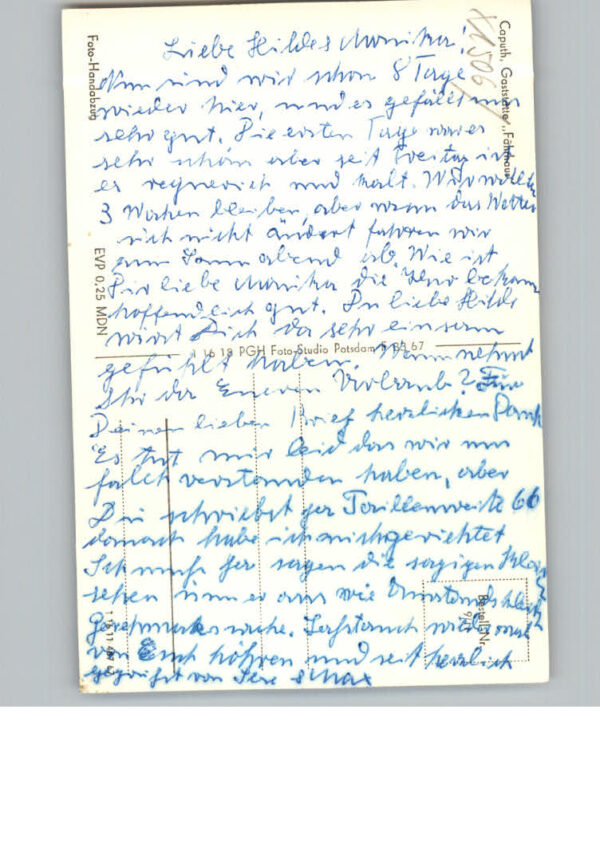 Liebe Hilde u Monika!
Nun sind wir schon 8 Tage
wieder hier, und es gefällt uns
sehr gut. Die ersten Tage war es
sehr schön aber seit Freitag ist
es regnerich und kalt. Wir wollten
3 Wochen bleiben, aber wenn das Wetter
sich nicht ändert fahren wir
am Sonnabend ab. Wie ist
Dir liebe Monika die
hoffendlich gut. Du liebe Hilde
wirst Dich da sehr einsam
gefühlt haben. Wann nehmt
Ihr da Eueren Uhrlaub? Für
Deinen lieben Brief herzlichen Dank
Es tut mir leid das wir uns
falch verstanden haben, aber
Du schriebst ja Taillenweite 66
danach habe ich mich gerichtet
Ich muss ja sagen die
sehen immer aus wie Umstandskleider
Geschmacks sache. Lasst auch mal
von Euch höhren und seit herzlich
gegrüßt von Max
Caputh, Gaststätte „Fährhaus"
11506
Foto-Handabzug
EVP 0,25 MDN
1 16 18 PGH Foto-Studio Potsdam F 83 67
Bestell-Nr.